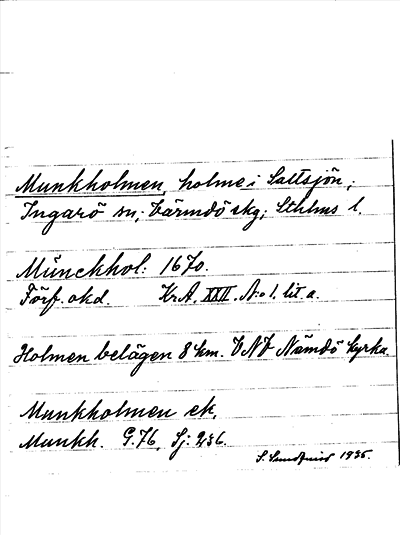 Munkholmen, holme i Saltsjön;
Ingarö sn; Värmdö skg; Sthlms l.
Münckhol: 1670.
Förf. okd. Kr.A. XXII. A:o 1. lit a.
Holmen belägen 8 km. VNV Nämdö kyrka.
Munkholmen ek,
Munkh. G.76, Sj: 236.
1935.